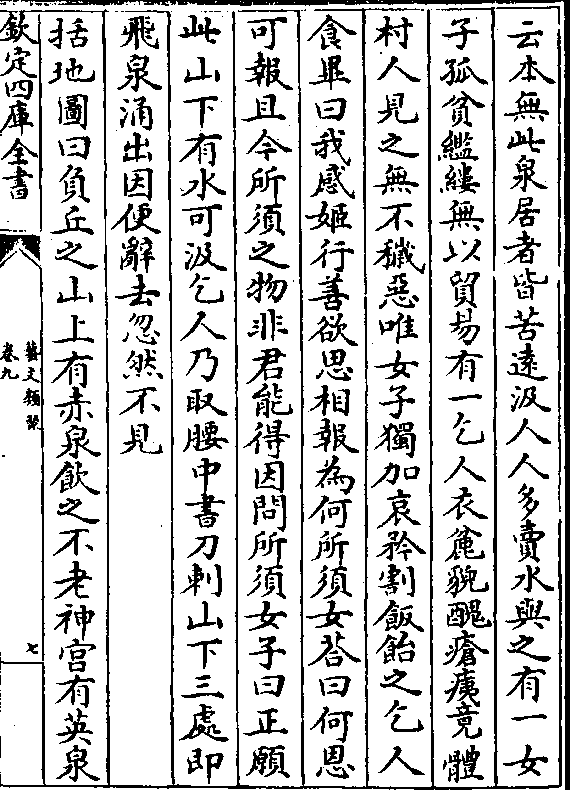 云本無此泉居者皆苦遠汲人人多賣水與之有一女
子孤貧繿縷無以貿易有一乞人衣麄貌醜瘡痍竟體
村人見之無不穢惡唯女子獨加哀矜割飯飴之乞人
食畢曰我感姬行善欲思相報為何所須女荅曰何恩
可報且今所須之物非君能得因問所須女子曰正願
此山下有水可汲乞人乃取腰中書刀刺山下三處即
飛泉涌出因便辭去忽然不見
括地圖曰負丘之山上有赤泉飲之不老神宫有英泉
欽定四庫全書
藝文類聚
卷九
七